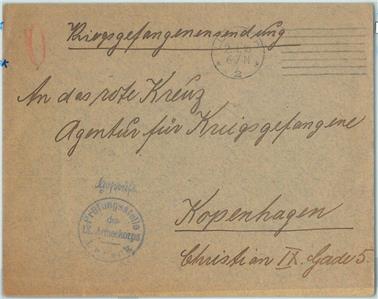 Kriegsgefangenensendung
2
An das rote Kreuz
Agentur für Kriegsgefangene
Geprüft
Prüfungsstelle
des
IX. Armeekorps
Kopenhagen
Christian IX. Gade 5.